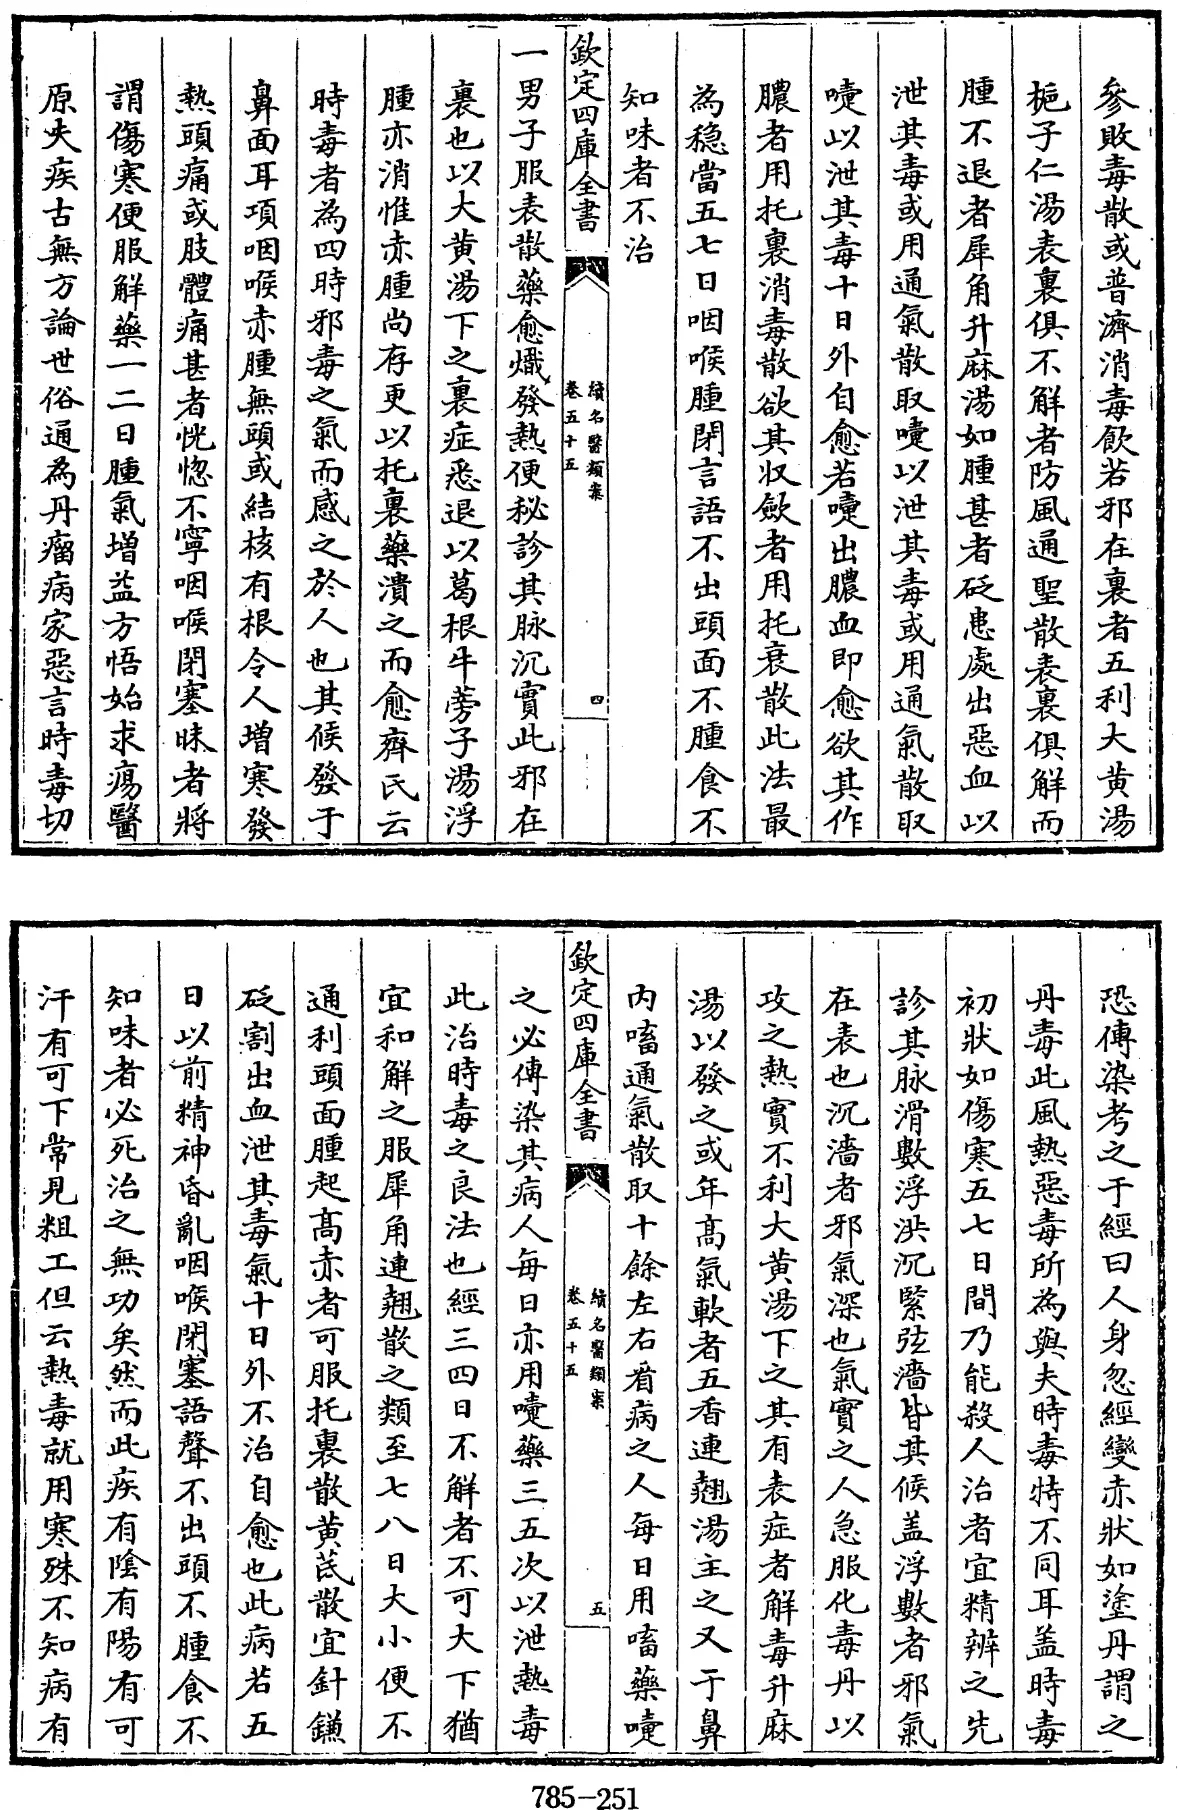 參敗毒散或普濟消毒飲若邪在裏者五利大黄湯
梔子仁湯表裏俱不解者防風通聖散表裏俱解而
腫不退者犀角升麻湯如腫甚者砭患處出惡血以
泄其毒或用通氣散取嚏以泄其毒或用通氣散取
嚏以泄其毒十日外自愈若嚏出膿血即愈欲其作
膿者用托裏消毒散欲其收歛者用托裏散此法最
為穩當五七日咽喉腫閉言語不出頭面不腫食不
知味者不治
欽定四庫全書
續名醫類案
卷五十五
四
一男子服表散藥愈熾發熱便秘診其脉沉實此邪在
裏也以大黄湯下之裏症悉退以葛根牛蒡子湯浮
腫亦消惟赤腫尚存更以托裏藥潰之而愈齊氏云
時毒者為四時邪毒之氣而感之於人也其候發于
鼻面耳項咽喉赤腫無頭或結核有根令人増寒發
熱頭痛或肢體痛甚者恍惚不寧咽喉閉塞昧者將
謂傷寒便服解藥一二日腫氣增益方悟始求瘍醫
原夫疾古無方論世俗通為丹瘤病家惡言時毒切
恐傳染考之于經曰人身忽經變赤狀如塗丹謂之
丹毒此風熱惡毒所為與夫時毒特不同耳盖時毒
初狀如傷寒五七日間乃能殺人治者宜精辨之先
診其脉滑數浮洪沉緊弦濇皆其候盖浮數者邪氣
在表也沉濇者邪氣深也氣實之人急服化毒丹以
攻之熱實不利大黄湯下之其有表症者解毒升麻
湯以發之或年高氣軟者五香連翹湯主之又于鼻
内㗜通氣散取十餘左右㸔病之人每日用㗜藥嚏
欽定四庫全書
續名醫類案
卷五十五
五
之必傳染其病人每日亦用嚏藥三五次以泄熱毒
此治時毒之良法也經三四日不解者不可大下猶
宜和解之服犀角連翹散之類至七八日大小便不
通利頭面腫起高赤者可服托裏散黄芪散宜針鐮
砭割出血泄其毒氣十日外不治自愈也此病若五
日以前精神昏亂咽喉閉塞語聲不出頭不腫食不
知味者必死治之無功矣然而此疾有隂有陽有可
汗有可下常見粗工但云熱毒就用寒殊不知病有
785-251